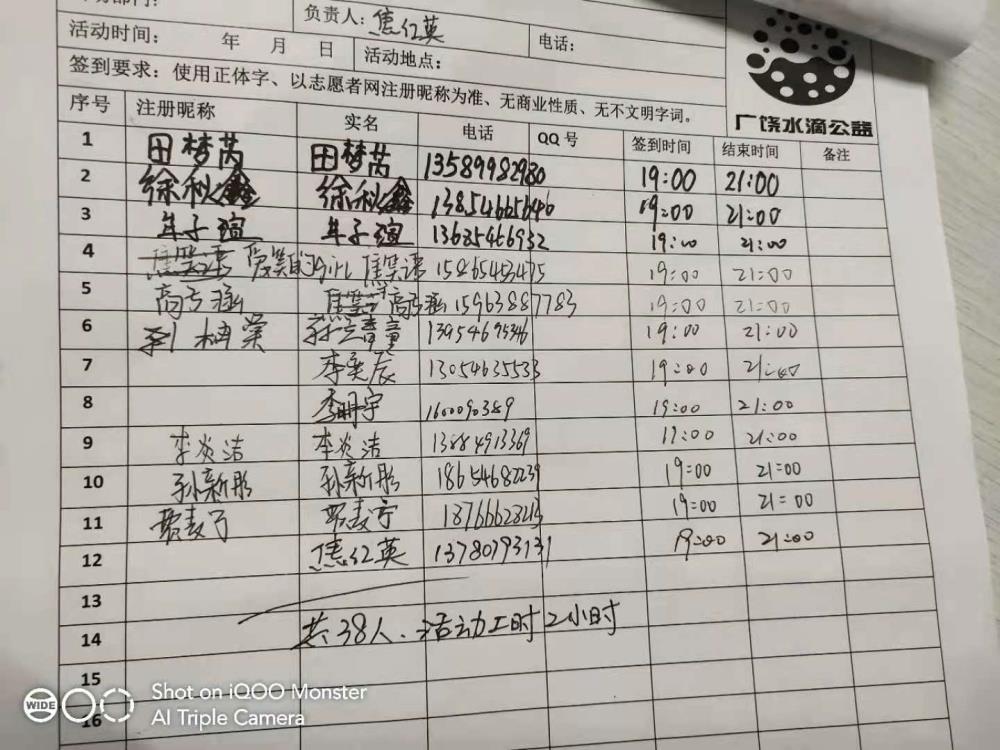 负责人：焦红英
电话：
活动时间： 年 月 日 活动地点：
签到要求：使用正体字、以志愿者网注册昵称为准、无商业性质、无不文明字词。
广饶水滴公益
序号 注册昵称 实名 电话 QQ号 签到时间 结束时间 备注
1 田梦芮 田梦芮 13589982980 19:00 21:00
2 徐秋鑫 徐秋鑫 13854665646 19:00 21:00
3 年子瑄 年子瑄 13625466932 19:00 21:00
4 焦笑语 爱笑的 焦笑语 15865453475 19:00 21:00
5 15963887783 19:00 21:00
6 13954695346 19:00 21:00
7 李奕辰 13054635533 19:00 21:00
8 李明宇 1600090389 19:00 21:00
9 李炎洁 李炎洁 13884913369 19:00 21:00
10 孙新彤 孙新彤 18654682239 19:00 21:00
11 19:00 21:00
12 焦红英 13780793131 19:00 21:00
13
14 共38人、活动工时2小时
15
16
WIDE
Shot on iQOO Monster
AI Triple Camera